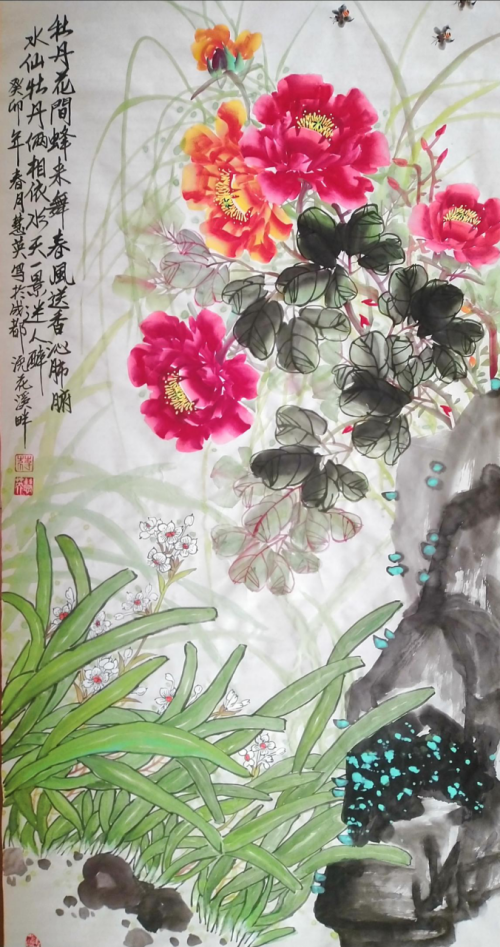 牡丹花間蜂来舞春風送香沁肺腑
水仙牡丹倆相依水天一景迷人醉
癸卯年春月慧英寫於成都浣花溪畔